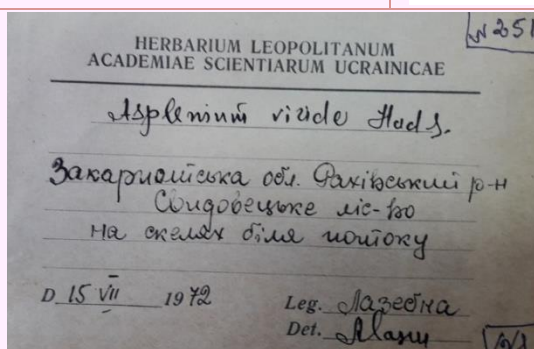 № 251
HERBARIUM LEOPOLITANUM
ACADEMIAE SCIENTIARUM UCRAINICAE
Asplenium viride Huds.
Закарпатська обл. Рахівський р-н
Свидовецьке ліс-во
на скелях біля потоку
D 15 VII 1972
Leg. Лазебна
Det.